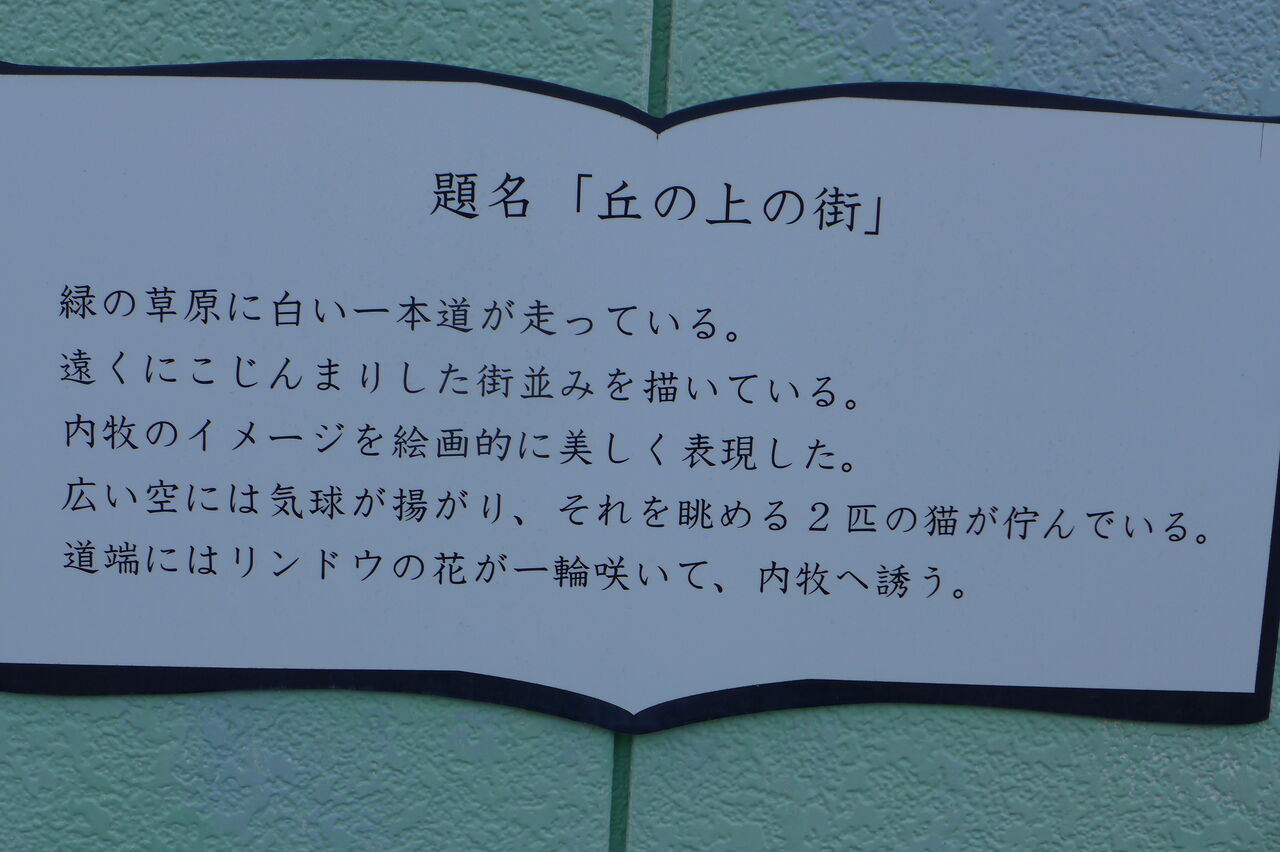 題名「丘の上の街」
緑の草原に白い一本道が走っている。
遠くにこじんまりした街並みを描いている。
内牧のイメージを絵画的に美しく表現した。
広い空には気球が揚がり、それを眺める2匹の猫が佇んでいる。
道端にはリンドウの花が一輪咲いて、内牧へ誘う。